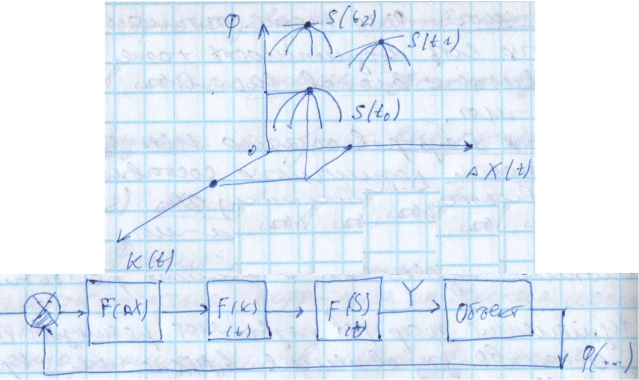 φ
S(t₂)
S(t₁)
S(t₀)
0
ΔX(t)
K(t)
F(ΔX)
F(K)
(t)
F(S)
(t)
Y
Объект
φ(...)